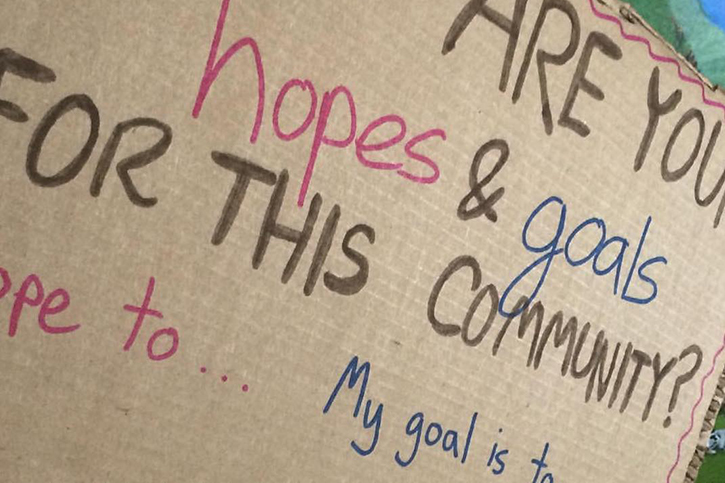 ARE YOU
hopes & goals
FOR THIS COMMUNITY?
ope to...
My goal is to